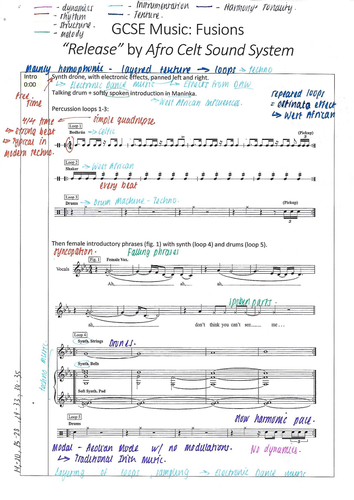 - dynamics
- rhythm
- Structure
- melody
- Instrumentation
- Texture
- Harmony Tonality
GCSE Music: Fusions
"Release" by Afro Celt Sound System
Mainly homophonic - layered texture → loops → techno
Intro
0:00
Synth drone, with electronic effects, panned left and right.
↳ Electronic Dance music ↳ Effects from DAW
Talking drum + softly spoken introduction in Maninka.
↳ West African influences.
Free
time
Percussion loops 1-3:
repeated loops
= ostinato effect
↳ West African
4/4 time
= simple quadruple
↳ strong beat
↳ typical in
modern techno.
Loop 1
Bodhrán
→ Celtic
(Pickup)
Loop 2
Shaker
→ West African
every beat
Loop 3
Drums
→ Drum Machine - Techno
(Pickup)
Then female introductory phrases (fig. 1) with synth (loop 4) and drums (loop 5).
Syncopation.
Falling phrases
Fig. 1
Female Vox.
Vocals
Ah,
ah,
ah,
spoken parts.
ah,
don't think you can't see
me ...
Loop 4
Synth. Strings
Drones.
Synth. Bells
Soft Synth. Pad
Slow harmonic pace.
Loop 5
Drums
Modal - Aeolian Mode w/ no modulations.
↳ Traditional Irish Music.
No dynamics.
Layering of loops, sampling → Electronic Dance music